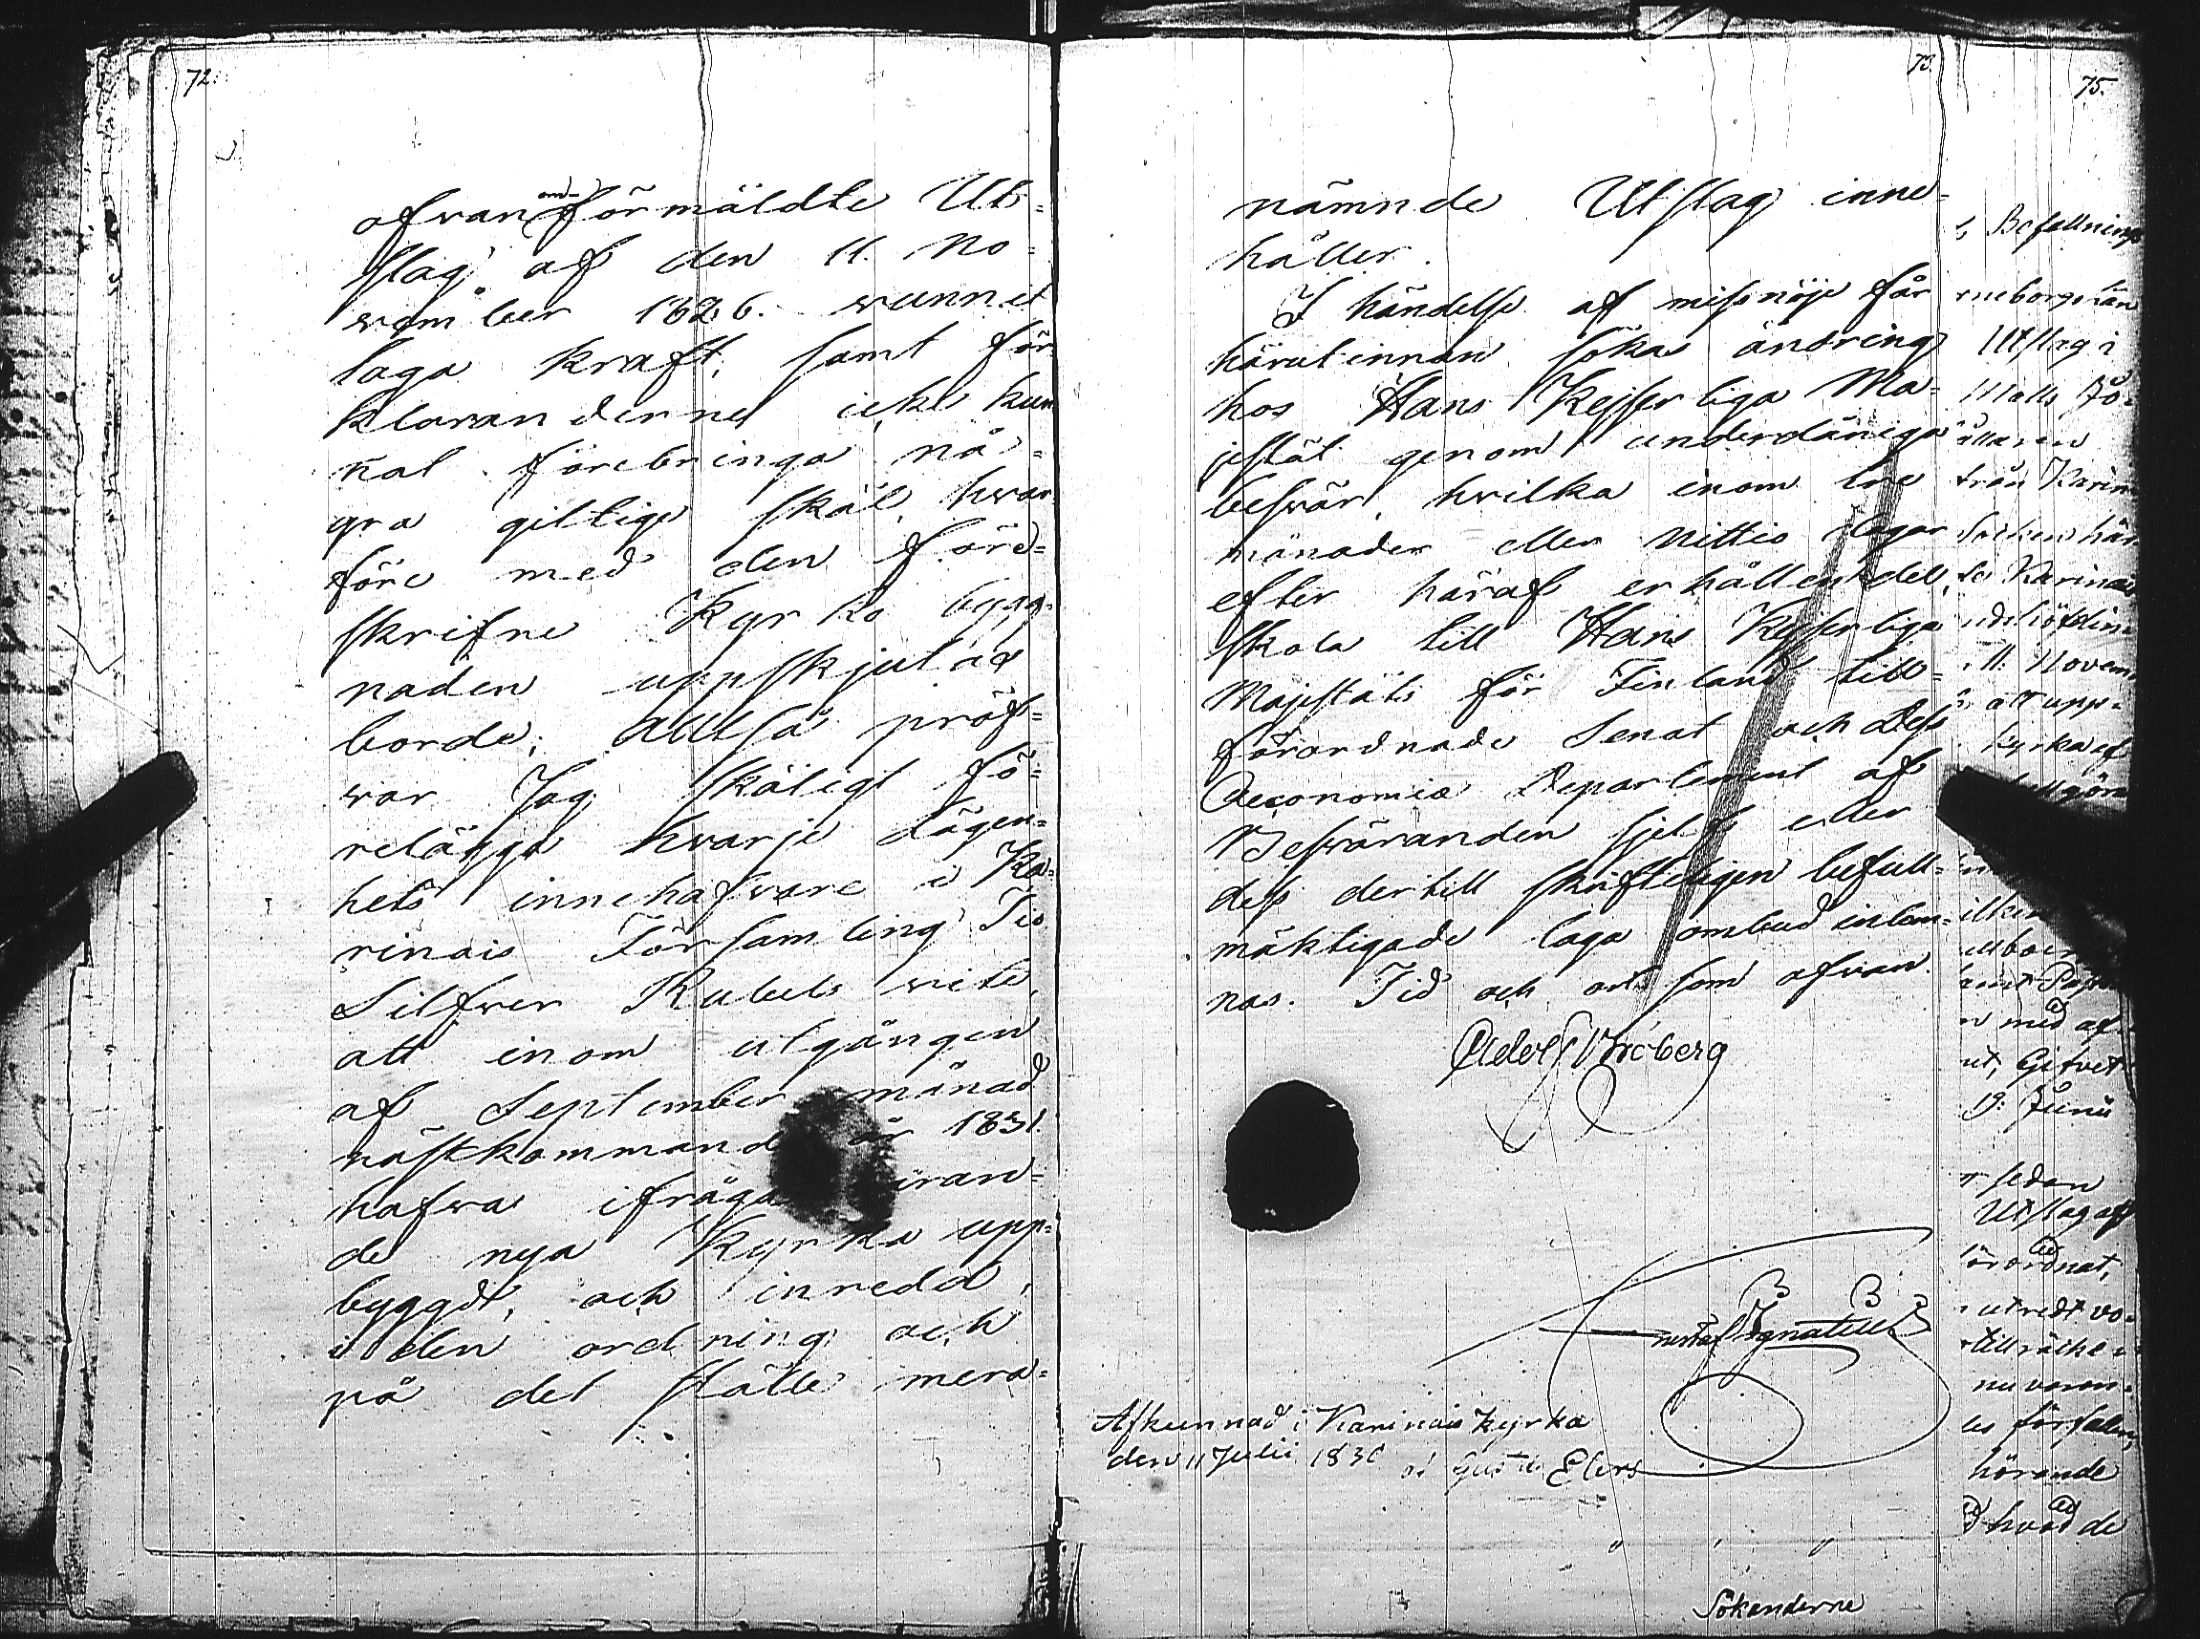 72.
ofvanomförmäldte Ut-
slag af den 11. No-
vember 1826. vunnit
laga kraft, samt för
klaranderne icke kun
nat förebringa nå-
gra giltige skäl, hvar
före med den före-
skrifne Kyrko bygg-
naden uppskjutas
borde; Alltså pröf-
var Jag skäligt fö-
relägga hvarje Lägen-
hets innehafvare i Ka-
rinais Församling Tio
Silfver Rubels vite,
att inom utgången
af September månad
nästkommande år 1831.
hafva ifråga varan-
de nya Kyrka upp-
byggd, och inredd,
i den ordning och
på det ställe mera-
73.
nämnde Utslag inne-
håller.
I händelse af missnöje får
härutinnan sökas ändring
hos Hans Kejserliga Ma-
jestät genom underdåniga
besvär, hvilka inom tre
månader eller Nittio dagar
efter häraf erhållen del,
skola till Hans Kejserliga
Majestäts för Finland till-
förordnade Senat och Dess
Oeconomie Departement af
Besväranden sjelf eller
dess dertill skrifteligen befull-
mäktigade laga ombud inlem-
nas. Tid och ort som ofvan.
Adolf Broberg
Gustaf Ignatius
Afkunnad i Karinais Kyrka
den 11 Julii 1830 af Gust. Elers
Sökanderne
75.
s Befallnings
rneborgs län
Utslag i
Matts Jo-
från Karin
Socken här
11. Novem
att upp-
Kyrka af
med af
ut, Gifvet
19: Junii
r sedan
Utslag af
förordnat,
utredt vo-
tillräckl
nu varan-
hörande
d hvad de